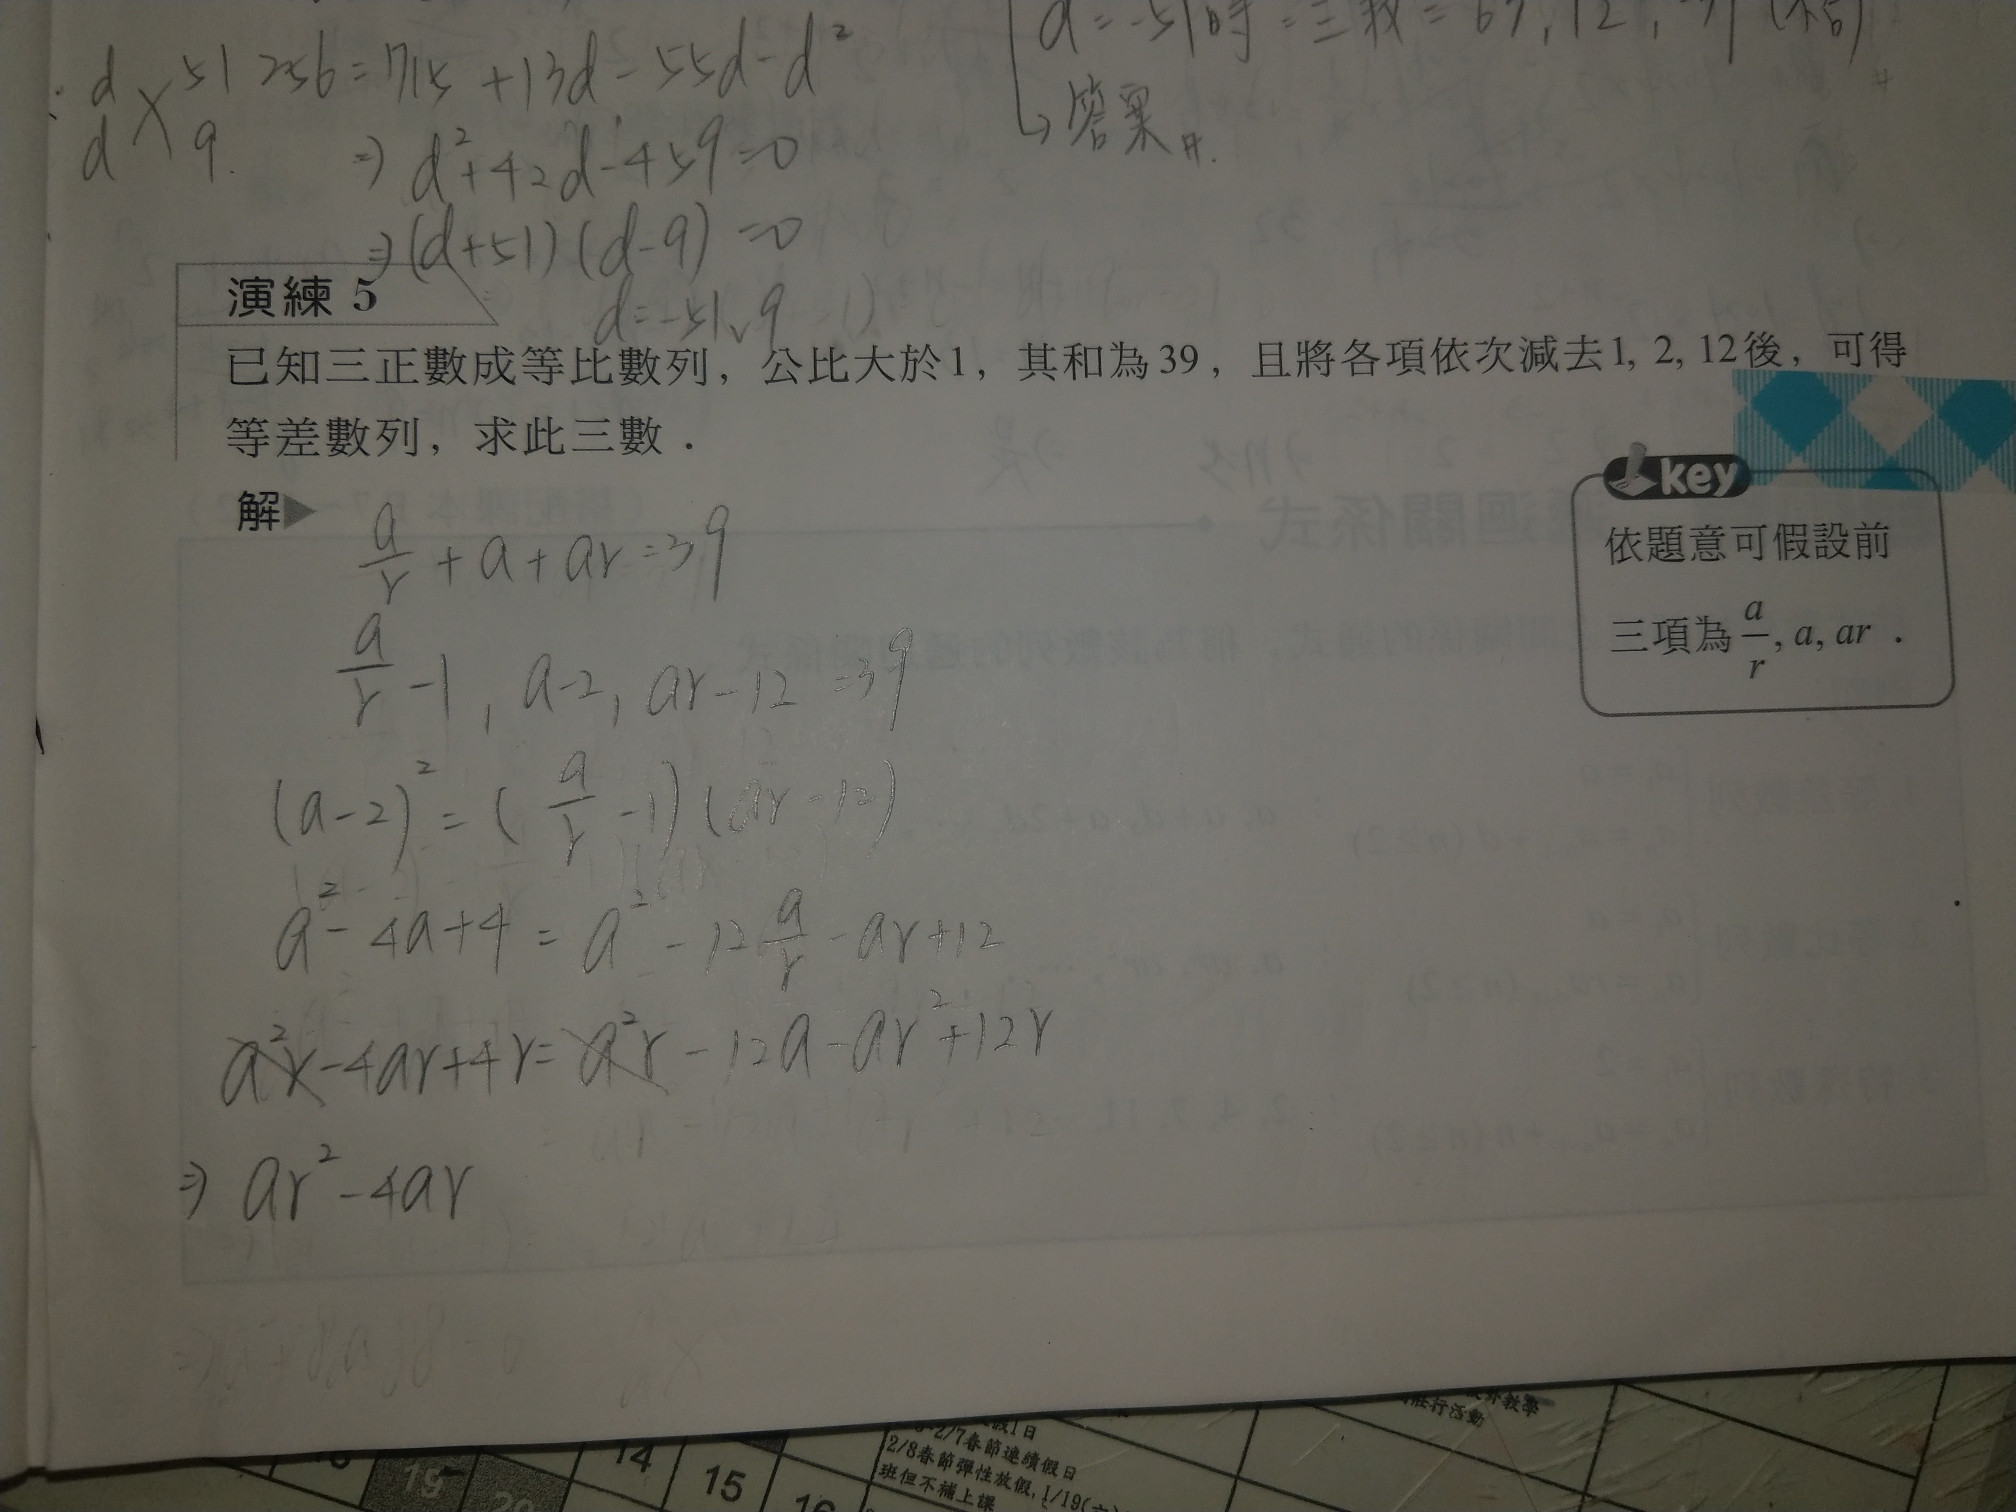 d 51 256=715+13d-55d-d²
d 9. ⇒ d²+42d-459=0
⇒(d+51)(d-9)=0
d=-51,9
d=-51時=三數=
↳答案#.
演練 5
已知三正數成等比數列，公比大於1，其和為39，且將各項依次減去1, 2, 12後，可得
等差數列，求此三數．
解▶
a/r + a + ar = 39
a/r - 1, a-2, ar-12 = 39
(a-2)² = (a/r - 1)(ar-12)
a²-4a+4 = a² - 12 a/r - ar + 12
a²r-4ar+4r = a²r - 12a - ar² + 12r
⇒ ar²-4ar
key
依題意可假設前
三項為 a/r, a, ar．
2/7春節連續假日
2/8春節彈性放假, 1/19(
班但不補上課
14
15
16
19
20